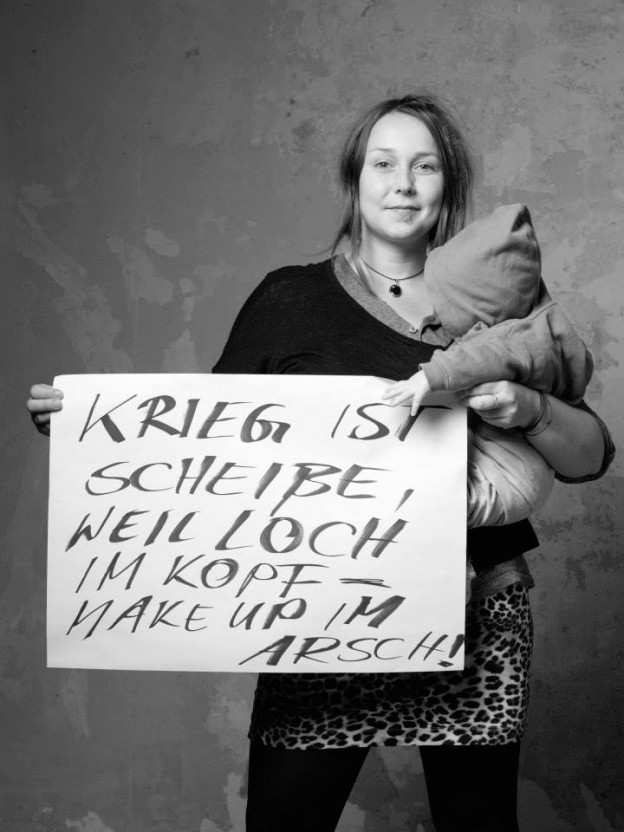 KRIEG IST
SCHEIßE,
WEIL LOCH
IM KOPF =
MAKE UP IM
ARSCH!